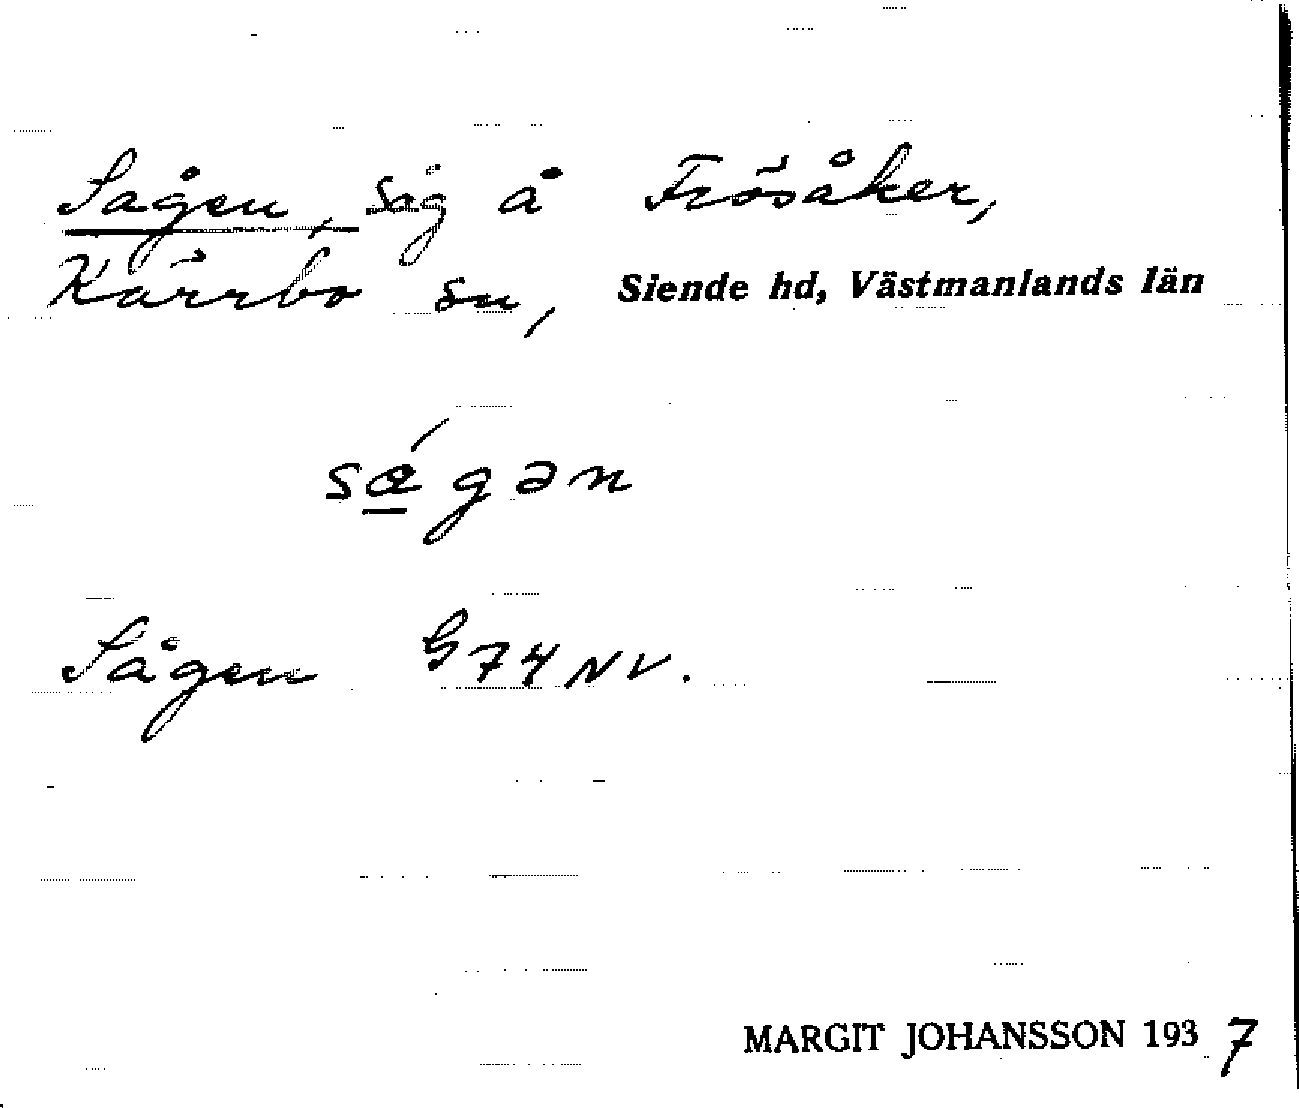 Sågen, såg å Frösåker,
Kärrbo sn, Siende hd, Västmanlands län
sǽgən
Sågen G74NV.
MARGIT JOHANSSON 1937